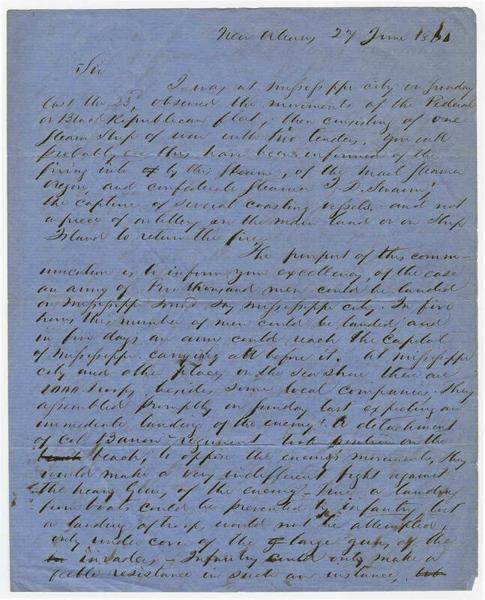 New Orleans 27 June 1861
Sir
I was at Mississippi city on Sunday
last the 23d, observed the movements of the Federal
or Black Republican fleet, then consisting of one
Steam Ship of war with two tenders. You will
probably ere this have been informed of the
firing into by this Steamer, of the mail Steamer
Oregon and confederate Steamer J. D. Swain,
the capture of several coasting vessels, and not
a piece of artillery on the main land or on Ship
Island to return the fire.
The purport of this comm-
unication is to inform your excellency, of the ease
an army of thousand men could be landed
on Mississippi Sound say Mississippi city. In five
hours this number of men could be landed and
in five days an army could reach the Capitol
of Mississippi carrying all before it. At Mississippi
city and other places on the Sea Shore there are
troops besides some local companies. They
assembled promptly on Sunday last expecting an
immediate landing of the enemy. A detachment
of Col Regiment took position on the
beach, to oppose the enemy's movements, they
would make a very indifferent fight against
the heavy Guns of the enemy. True, a landing
from boats could be prevented by infantry, but
a landing of troops would not be attempted,
only under cover of the large guns of the
invaders, Infantry could only make a
feeble resistance in such an instance,